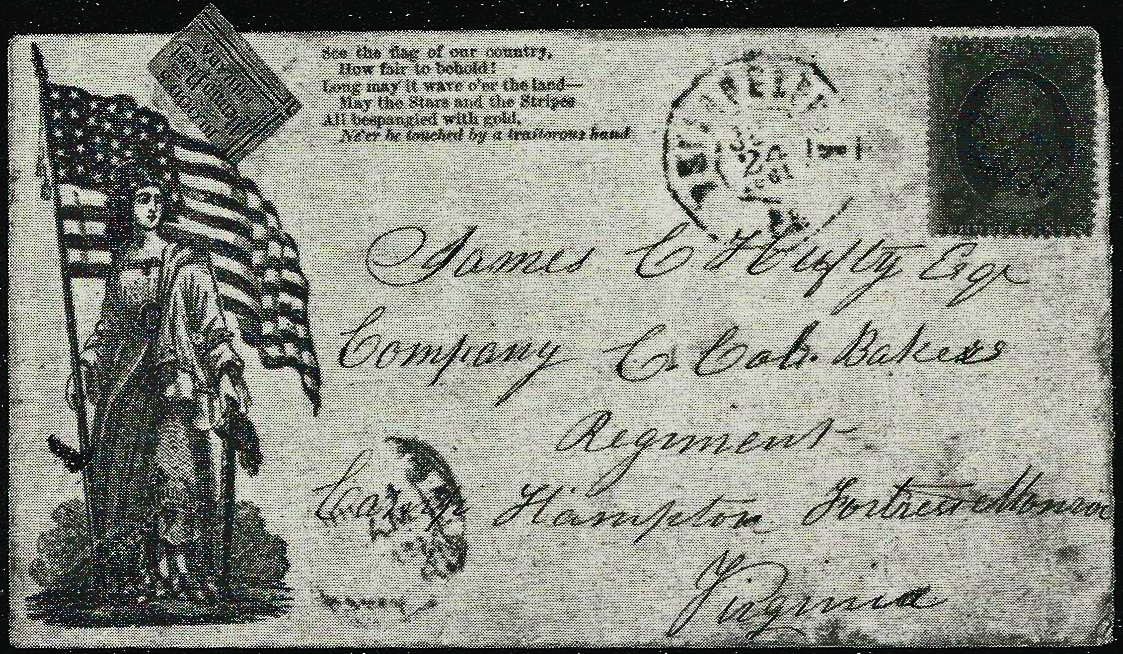 See the flag of our country,
How fair to behold!
Long may it wave o'er the land—
May the Stars and the Stripes
All bespangled with gold,
Ne'er be touched by a traitorous hand
20
James C Hufty Esqr
Company C. Col. Bakers
Regiment
Camp Hampton Fortress Monroe
Virginia